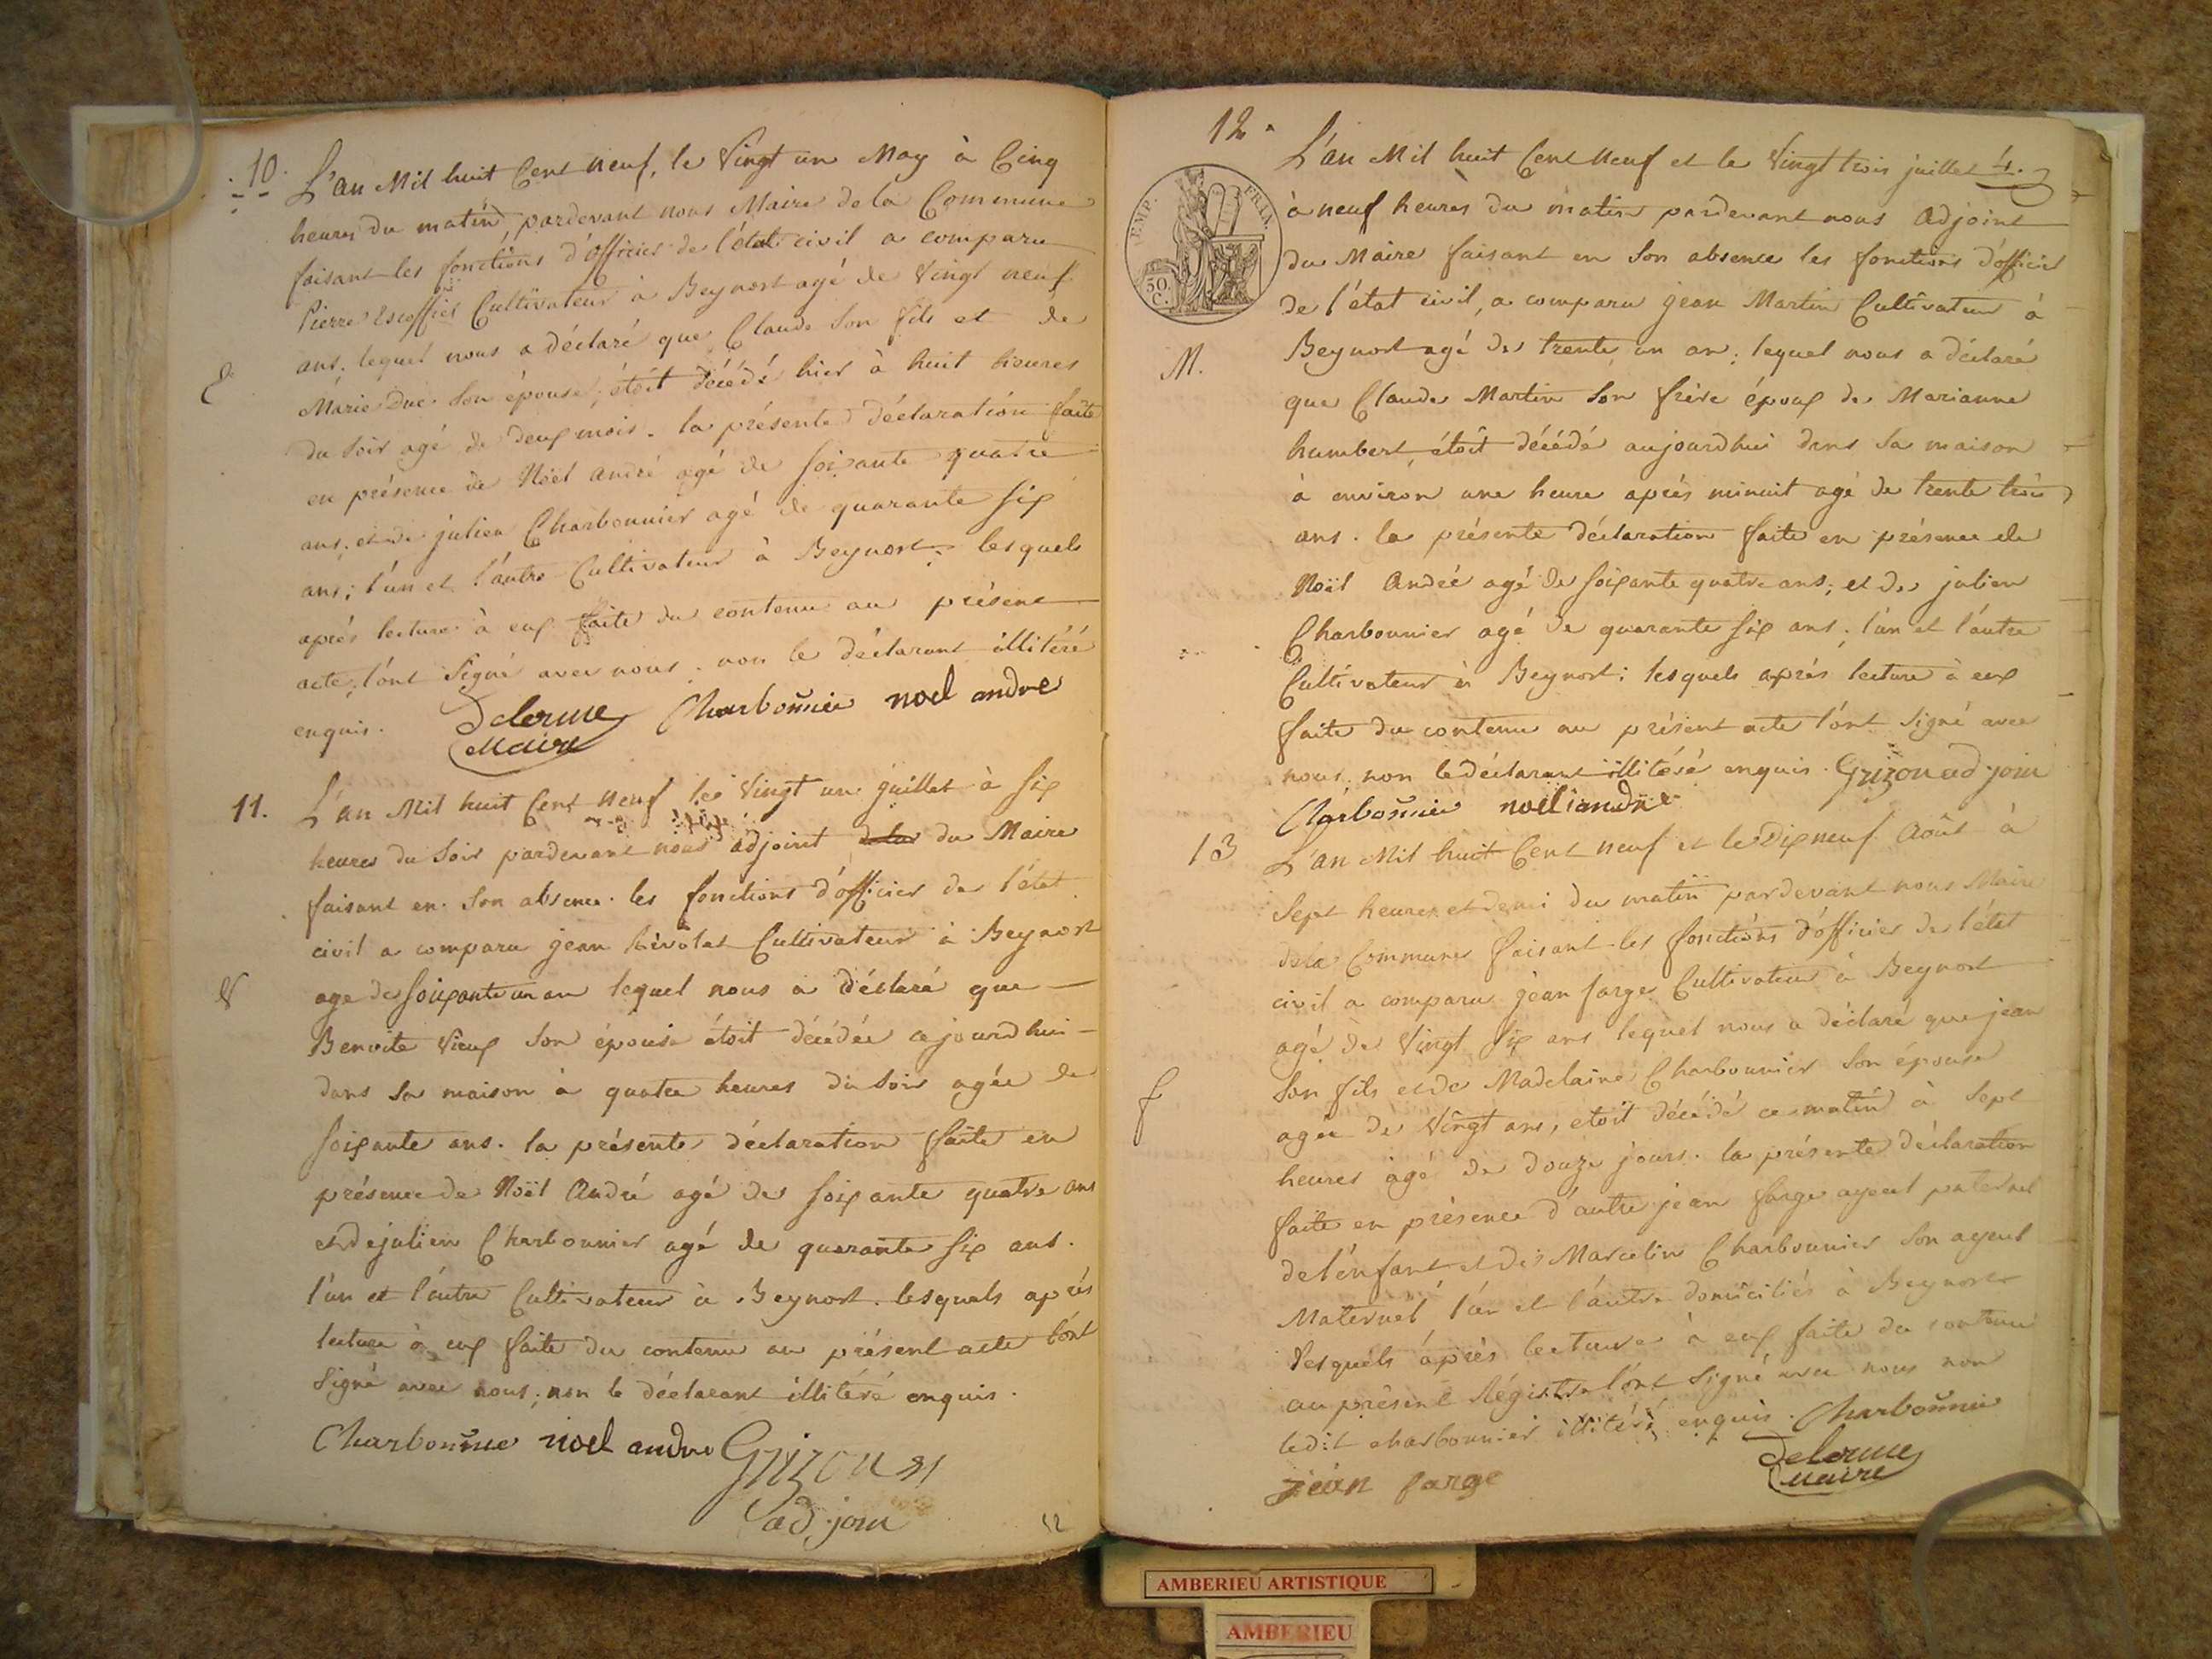 10.
L'an Mil huit Cent neuf, le Vingt un May à Cinq
heures du matin, pardevant nous Maire de la Commune
faisant les fonctions d'officier de l'état civil a comparu
Pierre Escoffier Cultivateur à Beynost agé de Vingt neuf
ans. lequel nous a déclaré que Claude Son fils et de
Marie Duc Son épouse, étoit décédé hier à huit heures
du Soir agé de deux mois. la présente déclaration faite
en présence de Noël André agé de soixante quatre
ans, et de julien Charbonnier agé de quarante six
ans; l'un et l'autre Cultivateur à Beynost. lesquels
après lecture à eux faite du contenu au présent
acte, l'ont Signé avec nous. non le déclarant illitéré
enquis.
Delorme
Maire
Charbonnier noel andre
11.
L'an Mil huit Cent neuf le Vingt un juillet à six
heures du Soir pardevant nous adjoint du Maire
faisant en Son absence les fonctions d'officier de l'état
civil a comparu jean Cultivateur à Beynost
age de soixante un an lequel nous a déclaré que
Benoite Vieux Son épouse étoit décédée cejourdhui
dans Sa maison à quatre heures du Soir agée de
soixante ans. la présente déclaration faite en
présence de Noël André agé de soixante quatre ans
et de julien Charbonnier agé de quarante six ans.
l'un et l'autre Cultivateur à Beynost. lesquels après
lecture à eux faite du contenu au présent acte l'ont
Signé avec nous; non le déclarant illitéré enquis.
Charbonnier noel andre Grizou
adjoin
12
12.
EMP. FRAN.
50.
C.
L'an Mil huit Cent Neuf et le Vingt trois juillet 4.
à neuf heures du matin pardevant nous Adjoint
du Maire faisant en Son absence les fonctions d'officier
de l'état civil, a comparu jean Martin Cultivateur à
M.
Beynost agé de trente un an; lequel nous a déclaré
que Claude Martin Son frère époux de Marianne
humbert, étoit décédé aujourdhui dans Sa maison
à environ une heure après minuit agé de trente trois
ans. la présente déclaration faite en présence de
Noël André agé de soixante quatre ans; et de julien
Charbonnier agé de quarante six ans; l'un et l'autre
Cultivateur à Beynost: lesquels après lecture à eux
faite du contenu au présent acte l'ont Signé avec
nous, non le déclarant illitéré enquis. Grizou adjoin
Charbonnier noel andre
13
L'an Mil huit Cent neuf et le Dix neuf Août à
Sept heures et demi du matin pardevant nous Maire
de la Commune faisant les fonctions d'officier de l'état
civil a comparu jean farge Cultivateur à Beynost
agé de Vingt Six ans lequel nous a déclaré que jean
f
Son fils et de Madelaine Charbonnier Son épouse
agée de Vingt ans, etoit décédé ce matin à Sept
heures agé de douze jours. la présente déclaration
faite en présence d'autre jean farge ayeul paternel
de l'enfant et de Marcelin Charbonnier Son ayeul
Maternel, l'un et l'autre domiciliés à Beynost
lesquels après lecture à eux faite du contenu
au présent Régistre l'ont Signé avec nous non
ledit charbonnier illitéré enquis. Charbonnier
jean farge
Delorme
Maire
AMBERIEU ARTISTIQUE
AMBERIEU